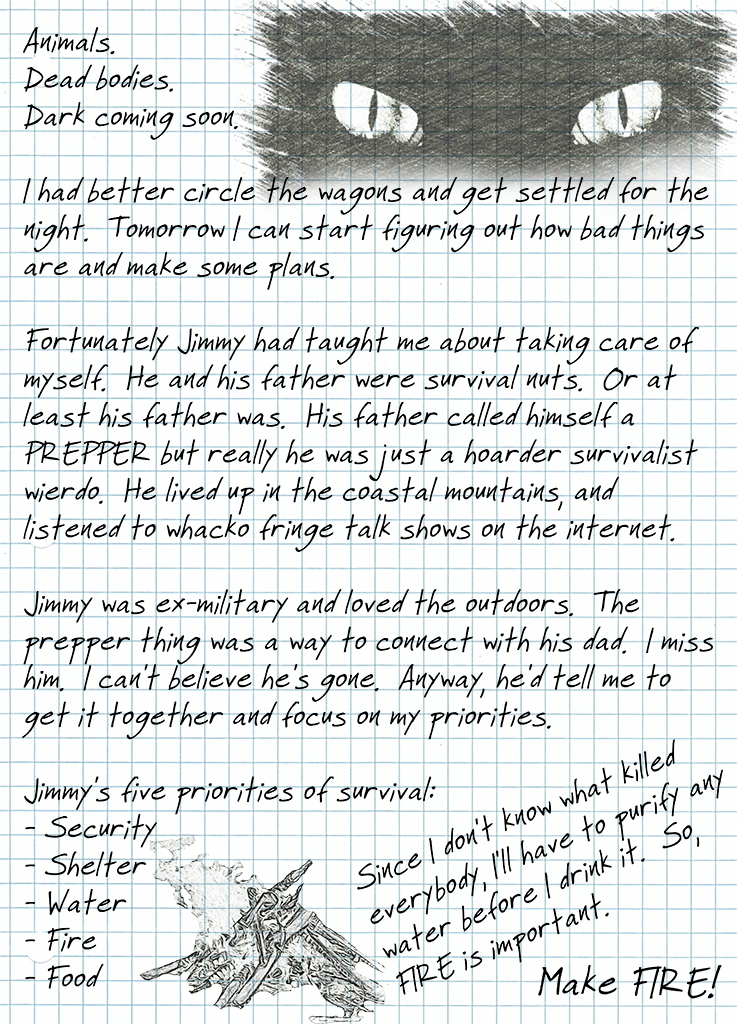 Animals.
Dead bodies.
Dark coming soon.
I had better circle the wagons and get settled for the
night. Tomorrow I can start figuring out how bad things
are and make some plans.
Fortunately Jimmy had taught me about taking care of
myself. He and his father were survival nuts. Or at
least his father was. His father called himself a
PREPPER but really he was just a hoarder survivalist
wierdo. He lived up in the coastal mountains, and
listened to whacko fringe talk shows on the internet.
Jimmy was ex-military and loved the outdoors. The
prepper thing was a way to connect with his dad. I miss
him. I can't believe he's gone. Anyway, he'd tell me to
get it together and focus on my priorities.
Jimmy's five priorities of survival:
- Security
- Shelter
- Water
- Fire
- Food
Since I don't know what killed
everybody, I'll have to purify any
water before I drink it. So,
FIRE is important.
Make FIRE!